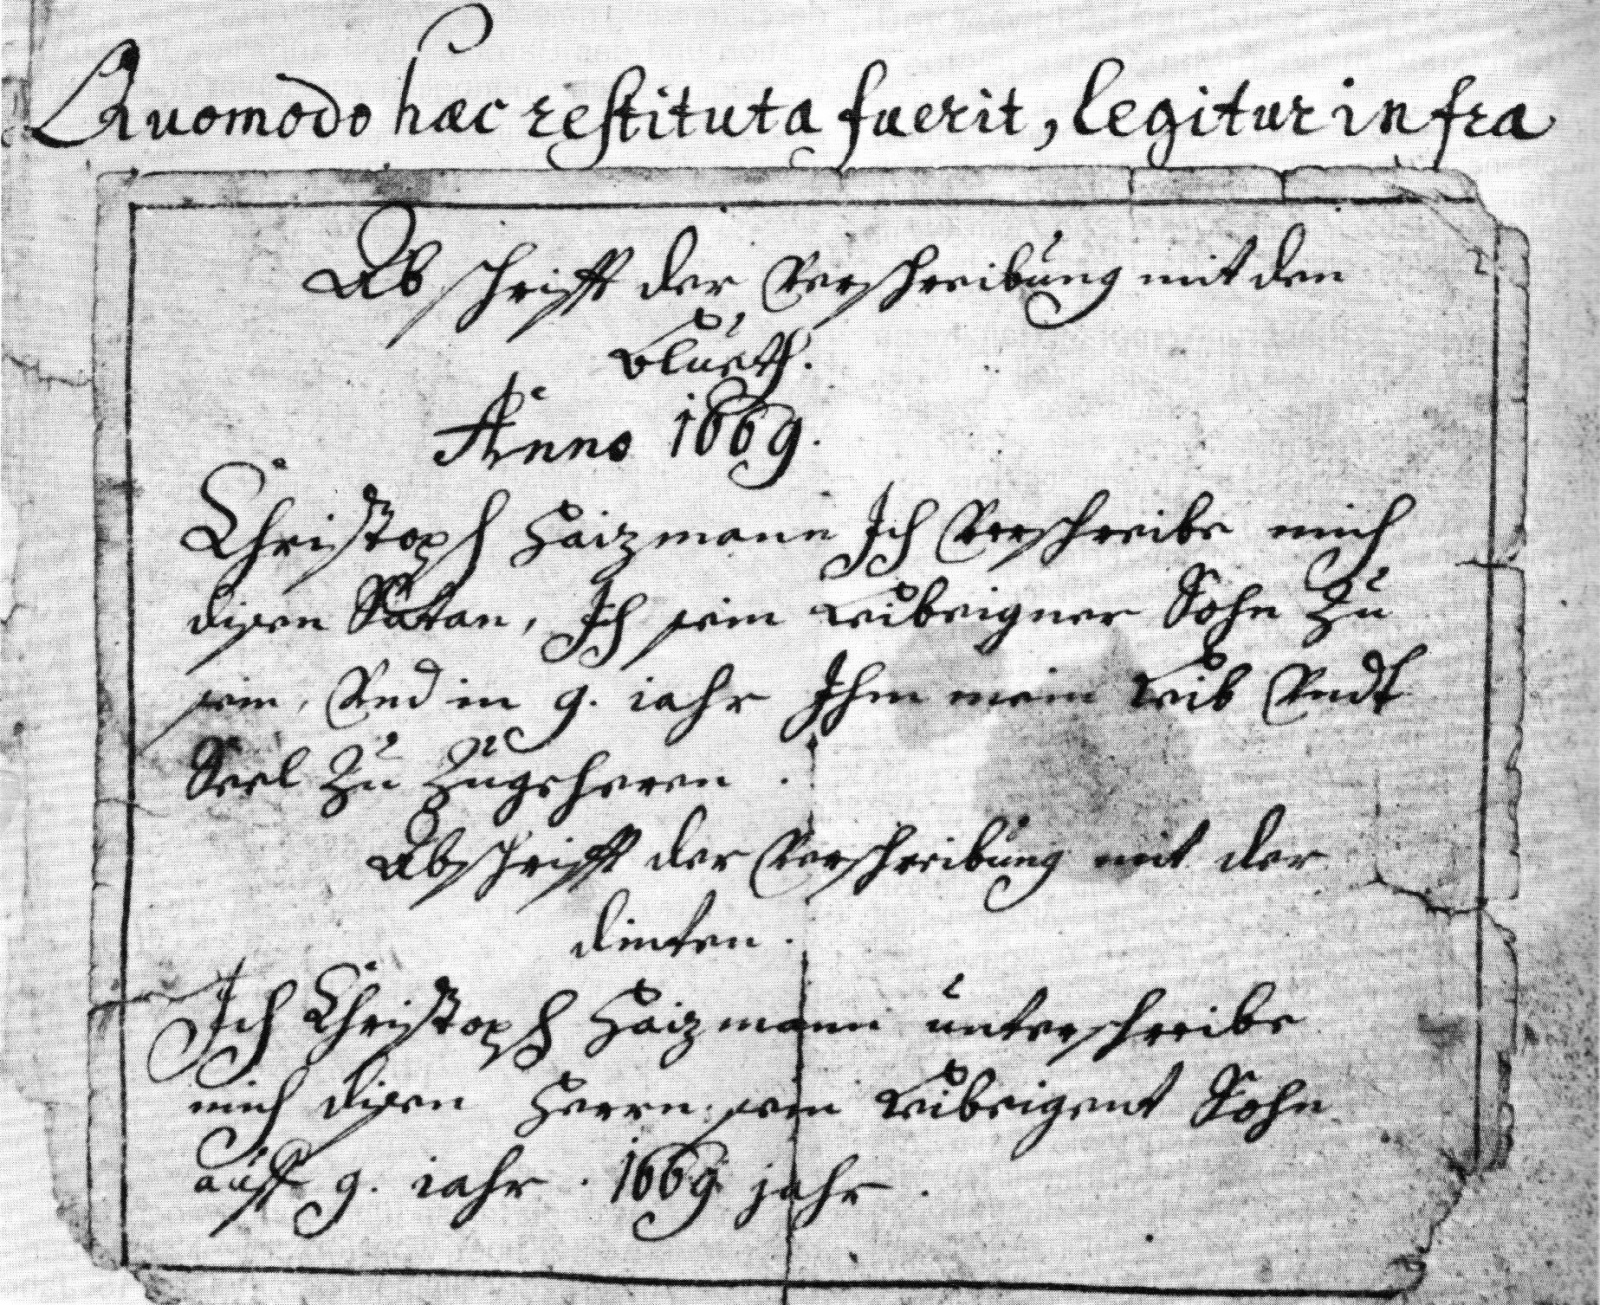 Quomodo hæc restituta fuerit, legitur infra
Abschrifft der Verschreibung mit den
blueth.
Anno 1669.
Christoph Haizmann Ich Verschreibe mich
disen Sātan, Ich sein Leibeigner Sohn Zu
sein, Vnd in 9. iahr Ihm mein Leib Vndt
Seel Zu Zugeheren.
Abschrifft der Verschreibung mit der
dinten.
Ich Christoph Haizmann unterschreibe
mich disen Herrn, sein Leibeigent Sohn
auff 9. iahr. 1669 jahr.